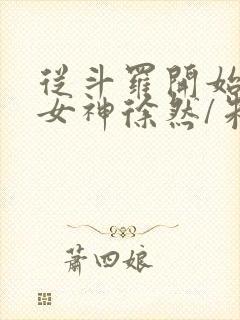 從斗羅開始
女神徐然/朱
蕭四娘